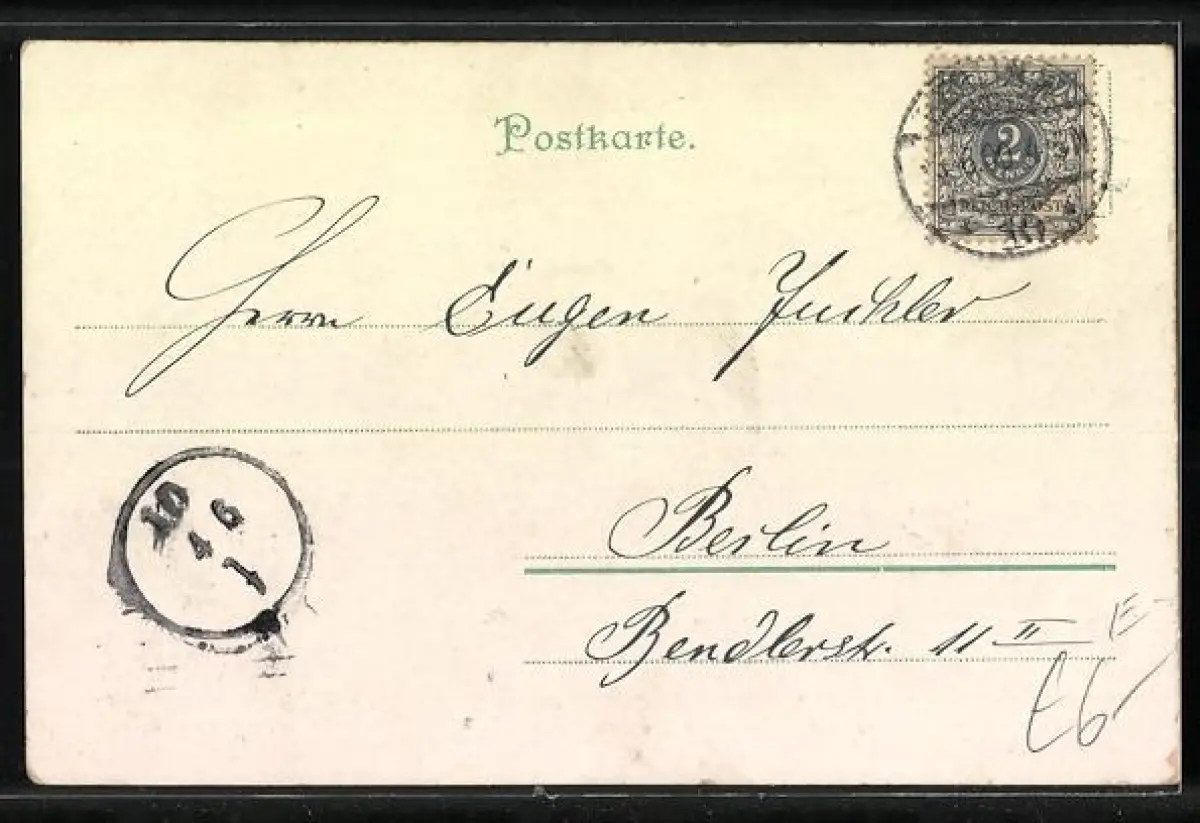 Postkarte.
2
REICHSPOST
10
Herrn Eugen
Berlin
Bendlerstr. 11 II
10
4 6
1